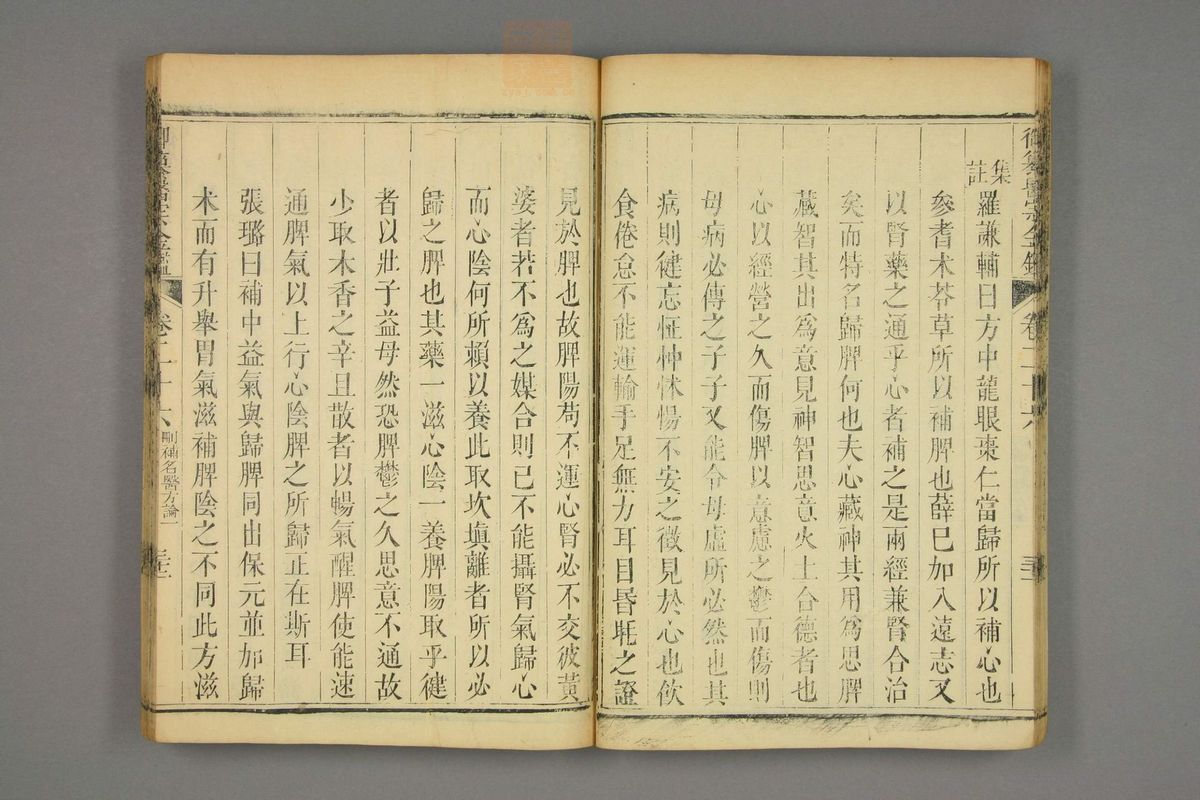 御纂醫宗金鑑 卷二十六
集註
羅謙輔曰方中龍眼棗仁當歸所以補心也
參耆术苓草所以補脾也薛已加入遠志又
以腎藥之通乎心者補之是兩經兼腎合治
矣而特名歸脾何也夫心藏神其用爲思脾
藏智其出爲意見神智思意火土合德者也
心以經營之久而傷脾以意慮之鬱而傷則
母病必傳之子子又能令母虛所必然也其
病則徤忘怔忡怵惕不安之徵見於心也飲
食倦怠不能運輸手足無力耳目昬眊之證
見於脾也故脾陽苟不運心腎必不交彼黃
婆者若不爲之媒合則已不能攝腎氣歸心
而心陰何所賴以養此取坎塡離者所以必
歸之脾也其藥一滋心陰一養脾陽取乎徤
者以壯子益母然恐脾鬱之久思意不通故
少取木香之辛且散者以暢氣醒脾使能速
通脾氣以上行心陰脾之所歸正在斯耳
張璐曰補中益氣與歸脾同出保元並加歸
术而有升舉胃氣滋補脾陰之不同此方滋
御纂醫宗金鑑 卷二十六 刪補名醫方論一